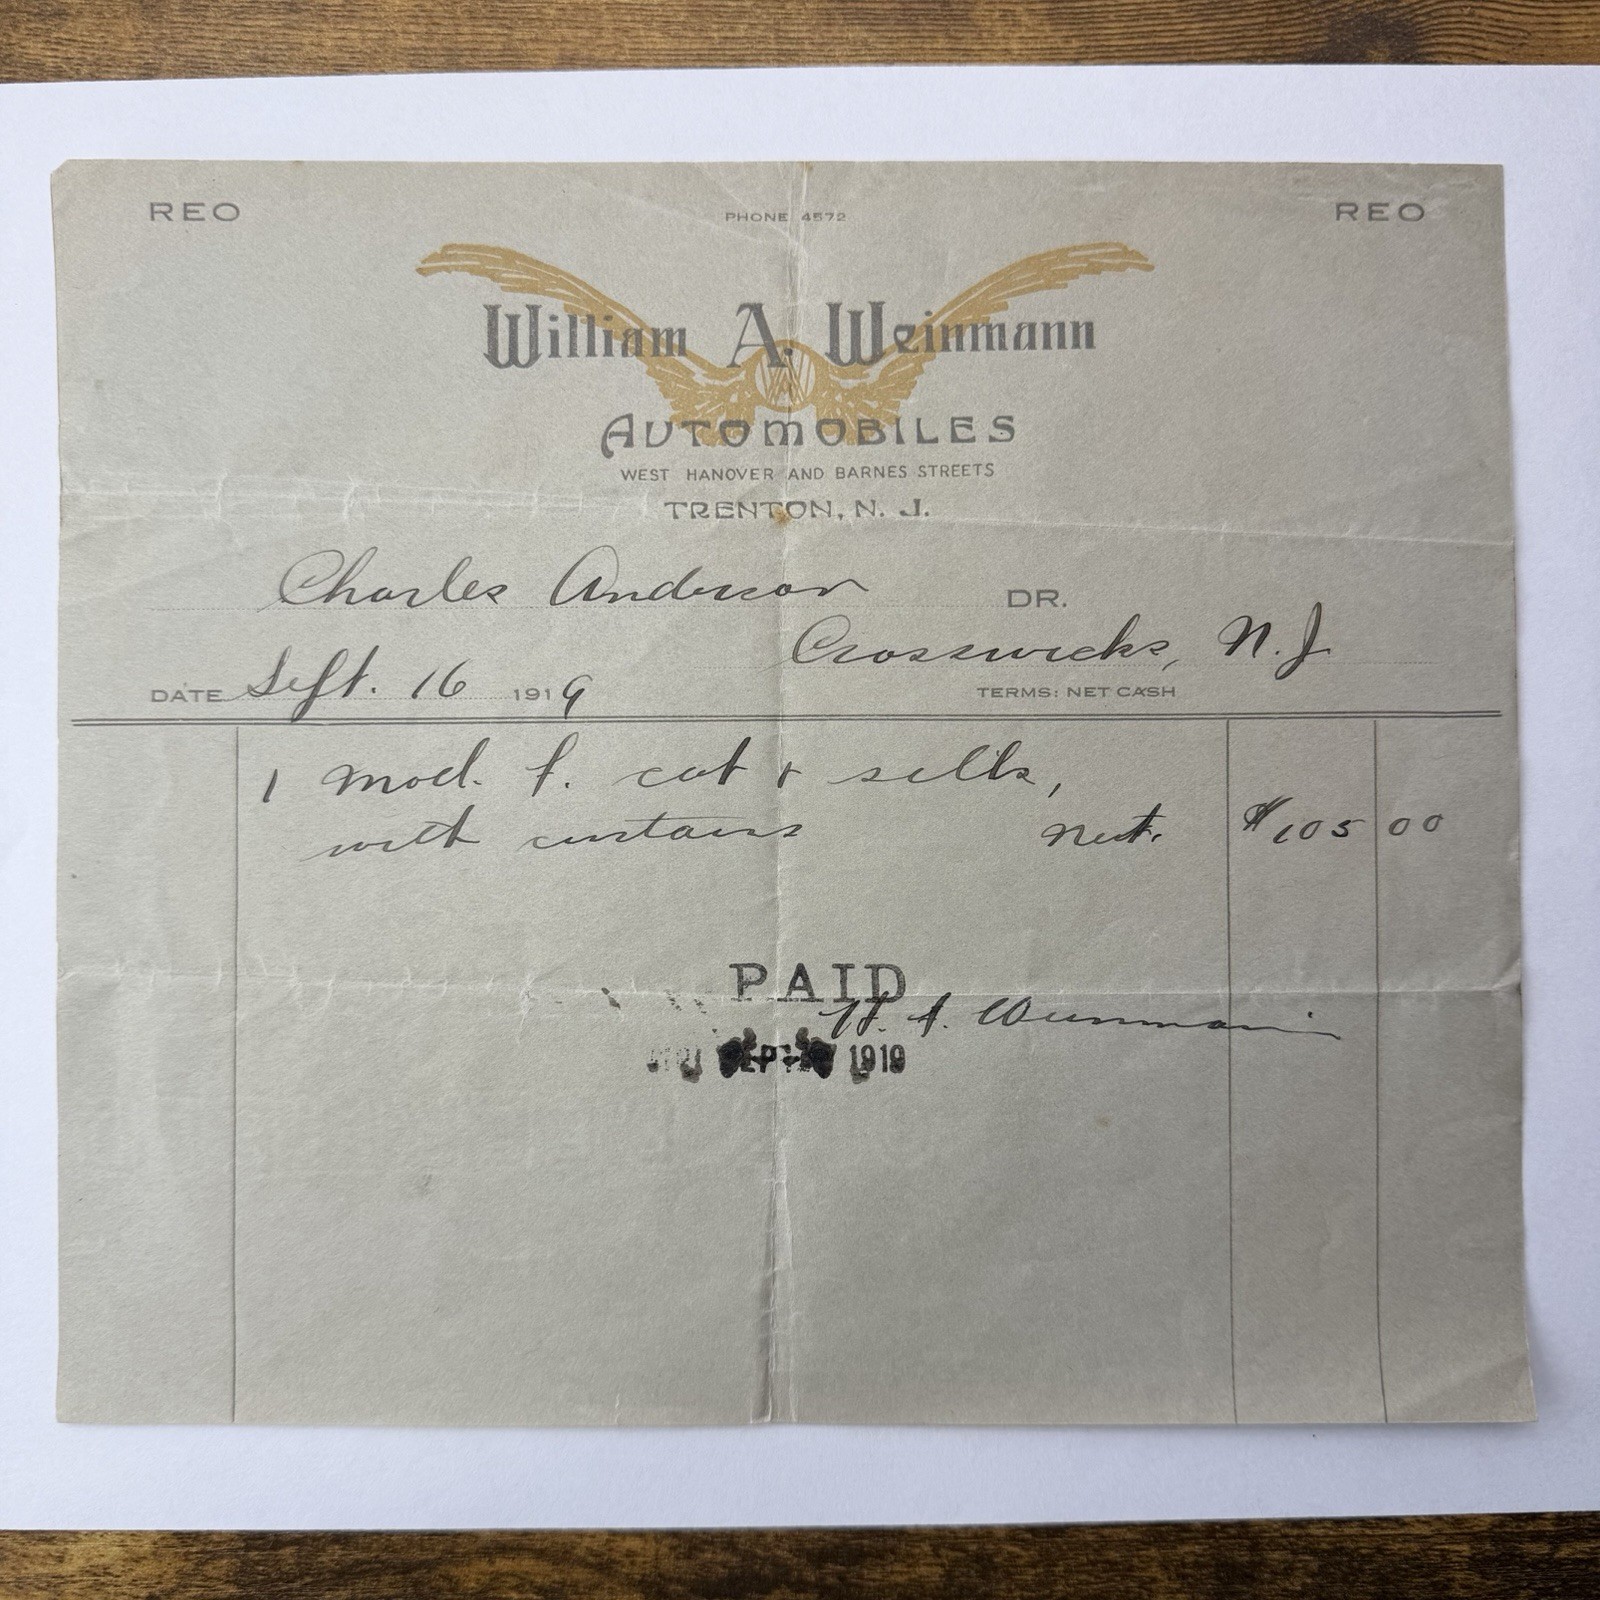 REO PHONE 4572 REO
William A. Weinmann
WAW
AUTOMOBILES
WEST HANOVER AND BARNES STREETS
TRENTON, N. J.
Charles Anderson DR.
Crosswicks, N.J.
DATE Sept. 16 1919 TERMS: NET CASH
1 Mod. F. cab & sills,
with curtains Net. $105 00
PAID
W. A. Weinmann
SEP 1919